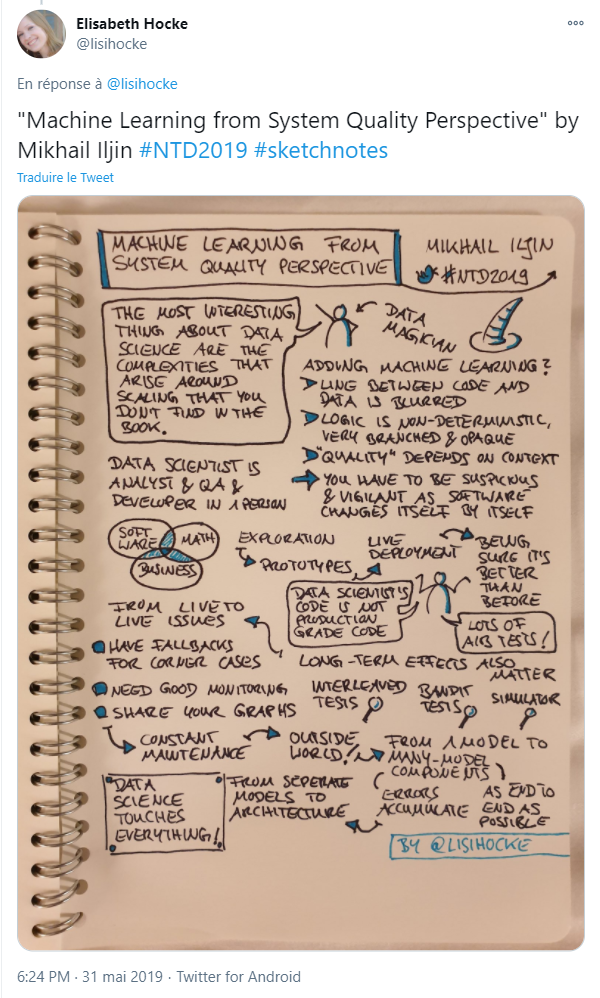 Elisabeth Hocke
@lisihocke
En réponse à @lisihocke
"Machine Learning from System Quality Perspective" by
Mikhail Iljin #NTD2019 #sketchnotes
Traduire le Tweet
MACHINE LEARNING FROM
SYSTEM QUALITY PERSPECTIVE
MIKHAIL ILJIN
#NTD2019
THE MOST INTERESTING
THING ABOUT DATA
SCIENCE ARE THE
COMPLEXITIES THAT
ARISE AROUND
SCALING THAT YOU
DON'T FIND IN THE
BOOK.
DATA
MAGICIAN
ADDING MACHINE LEARNING?
LINE BETWEEN CODE AND
DATA IS BLURRED
LOGIC IS NON-DETERMINISTIC,
VERY BRANCHED & OPAQUE
"QUALITY" DEPENDS ON CONTEXT
YOU HAVE TO BE SUSPICIOUS
& VIGILANT AS SOFTWARE
CHANGES ITSELF BY ITSELF
DATA SCIENTIST IS
ANALYST & QA &
DEVELOPER IN 1 PERSON
SOFT
WARE
MATH
BUSINESS
EXPLORATION
PROTOTYPES
LIVE
DEPLOYMENT
BEING
SURE IT'S
BETTER
THAN
BEFORE
DATA SCIENTIST'S
CODE IS NOT
PRODUCTION
GRADE CODE
LOTS OF
A/B TESTS!
FROM LIVE TO
LIVE ISSUES
HAVE FALLBACKS
FOR CORNER CASES
NEED GOOD MONITORING
SHARE YOUR GRAPHS
LONG-TERM EFFECTS ALSO
MATTER
INTERLEAVED
TESTS
BANDIT
TESTS
SIMULATOR
CONSTANT
MAINTENANCE
OUTSIDE
WORLD!
FROM 1 MODEL TO
MANY-MODEL
COMPONENTS
ERRORS
ACCUMULATE
AS END TO
END AS
POSSIBLE
FROM SEPERATE
MODELS TO
ARCHITECTURE
DATA
SCIENCE
TOUCHES
EVERYTHING!
BY @LISIHOCKE
6:24 PM · 31 mai 2019 · Twitter for Android